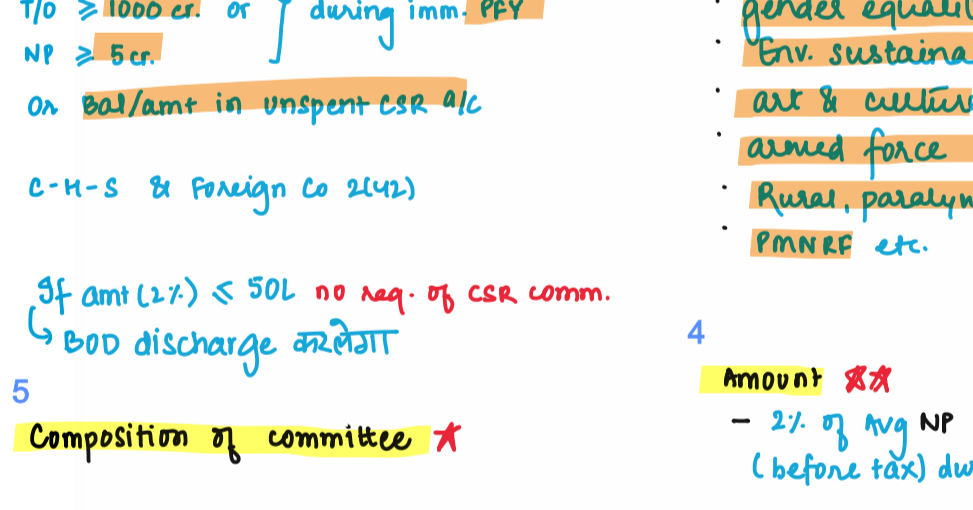 T/O ≥ 1000 cr. or
during imm. PFY
NP ≥ 5 cr.
or Bal/amt in unspent CSR a/c
C-H-S & Foreign Co 2(42)
If amt (2%) ≤ 50L no req. of CSR comm.
↳ BOD discharge करलेगा
5
Composition of committee ☆
· gender equali
· Env. sustaina
· art & cultur
· armed force
· Rural, paralym
· PMNRF etc.
4
Amount ☆☆
- 2% of Avg NP
(before tax) du